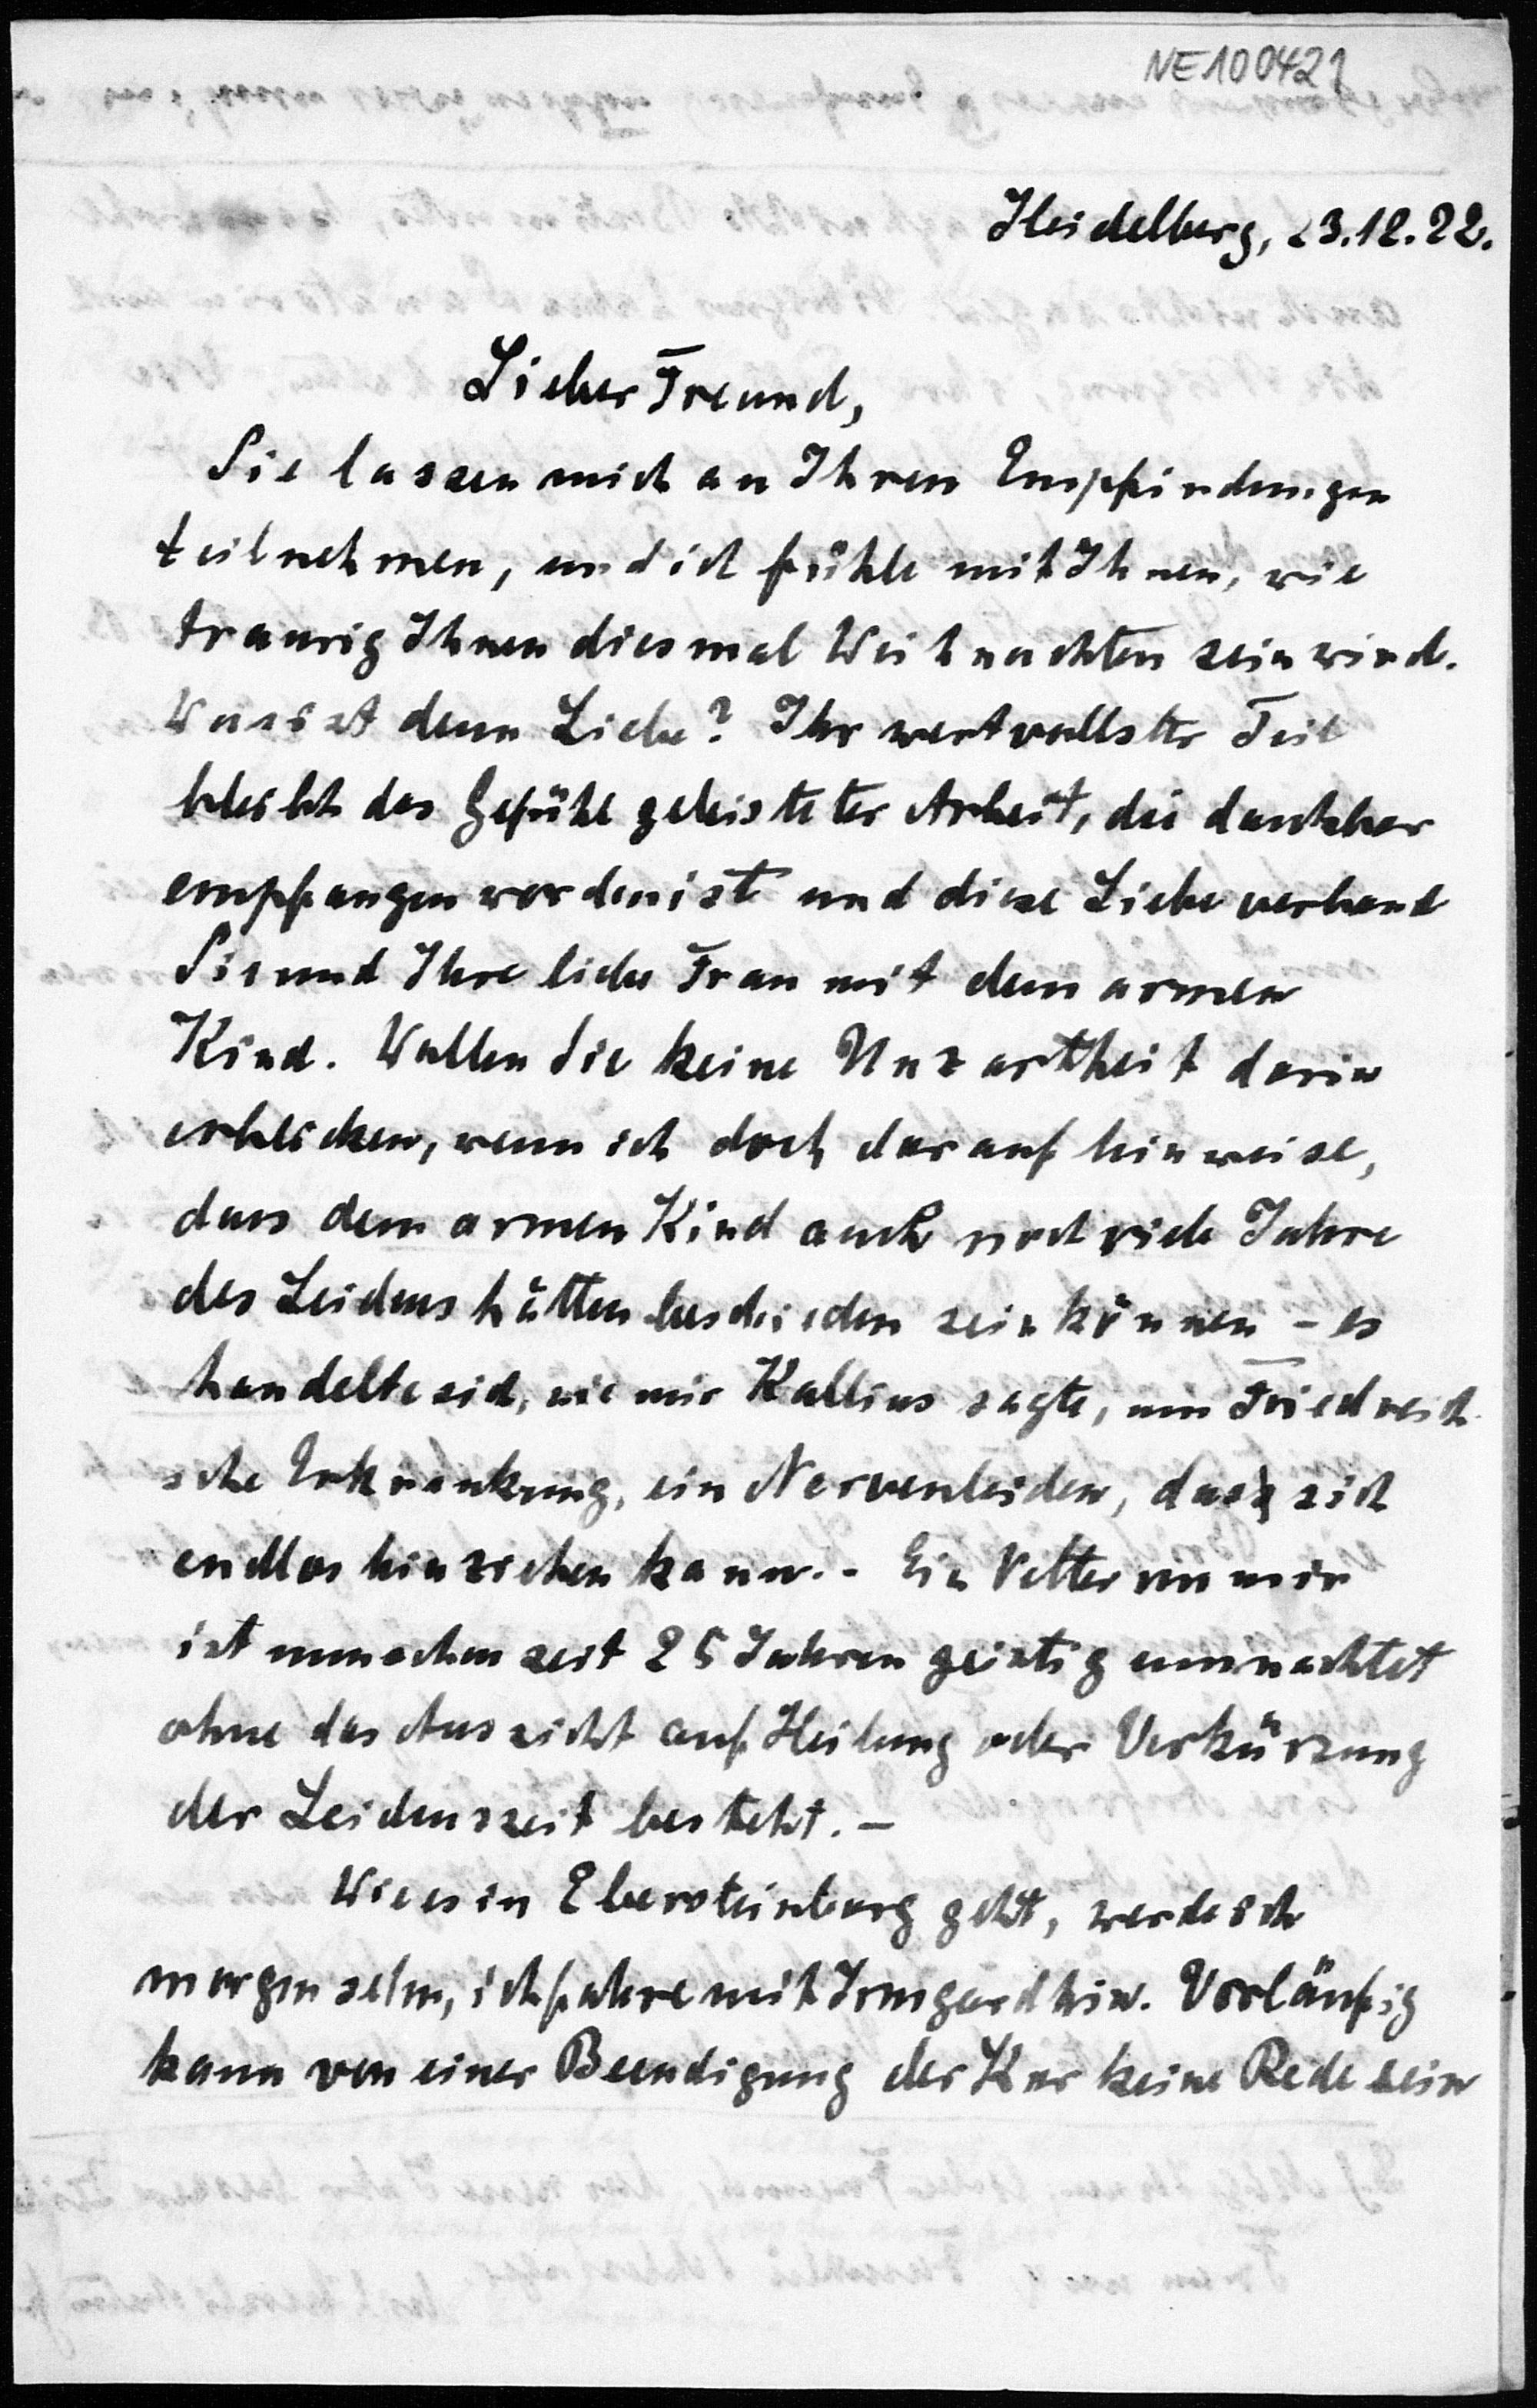 NE100421
Heidelberg, 23.12.22.
Lieber Freund,
Sie lassen mich an Ihren Empfindungen
teilnehmen, und ich fühle mit Ihnen, wie
traurig Ihnen diesmal Weihnachten sein wird.
Was ist denn Liebe? Ihr wertvollster Teil
bleibt das Gefühl geleisteter Arbeit, die dankbar
empfangen worden ist und diese Liebe verband
Sie und Ihre liebe Frau mit dem armen
Kind. Wollen Sie keine Unzartheit darin
erblicken, wenn ich doch darauf hinweise,
dass dem armen Kind auch noch viele Jahre
des Leidens hätten beschieden sein können - es
handelte sich, wie mir Kallius sagte, um Friedreich
sche Erkrankung, ein Nervenleiden, das sich
endlos hinziehen kann. - Ein Vetter von mir
ist nun schon seit 25 Jahren geistig umnachtet
ohne das Aussicht auf Heilung oder Verkürzung
der Leidenszeit besteht. -
Wie es in Ebersteinburg geht, werde ich
morgen sehn, ich fahre mit Irmgard hin. Vorläufig
kann von einer Beendigung der Kur keine Rede sein